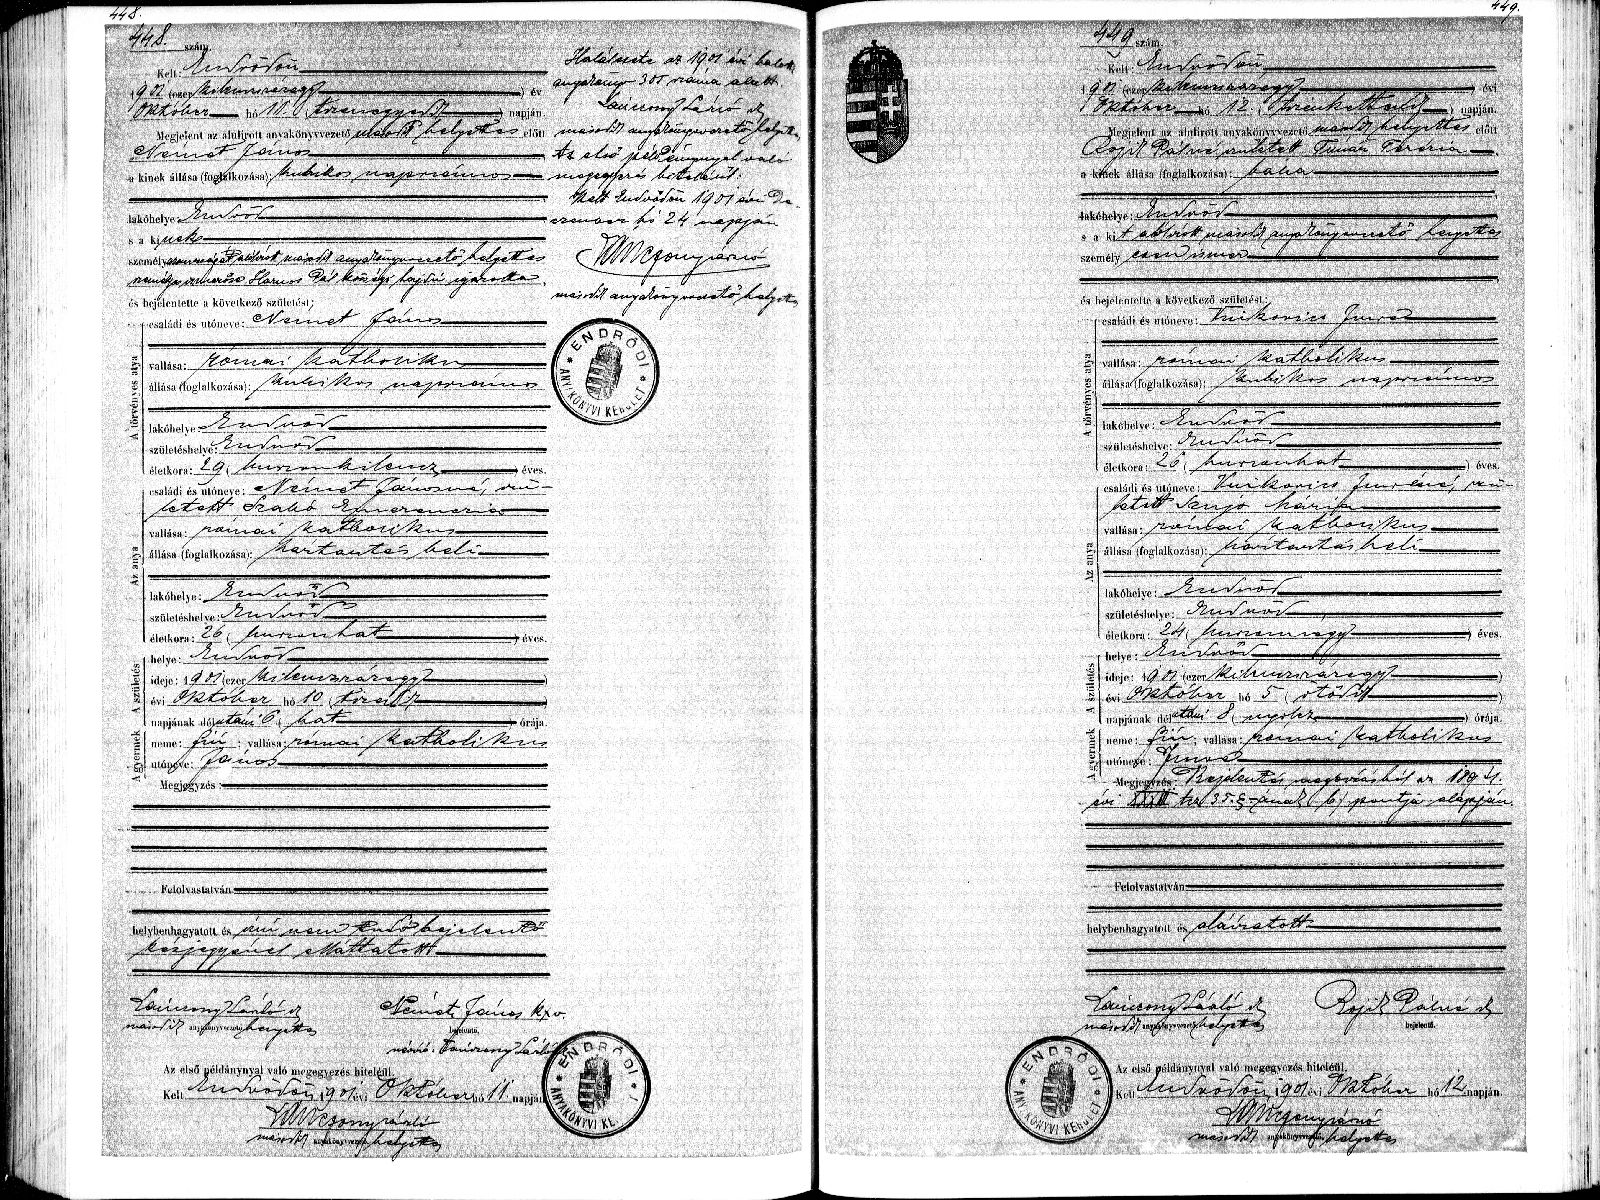 448.
448. szám.
Kelt: Endrődön
1901 (ezer kilenczszázegy) év
Október hó 11. (tizenegyedik) napján.
Megjelent az alulirott anyakönyvvezető második helyettes előtt
Német János
a kinek állása (foglalkozása): kubikos napszámos
lakóhelye: Endrőd
s a kinek
személyazonosságát alulirott második anyakönyvvezető helyettes
Hornok Pál községi hajdú igazolta.
és bejelentette a következő születést:
A törvényes atya
családi és utóneve: Német János
vallása: római katholikus
állása (foglalkozása): kubikos napszámos
lakóhelye: Endrőd
születéshelye: Endrőd
életkora: 29 (huszonkilencz) éves.
Az anya
családi és utóneve: Német Jánosné, szü-
letett Szabó Emerenczia
vallása: római katholikus
állása (foglalkozása): háztartásbeli
lakóhelye: Endrőd
születéshelye: Endrőd
életkora: 26 (huszonhat) éves.
A születés
helye: Endrőd
ideje: 1901 (ezer kilenczszázegy)
évi Október hó 10 (tizedik)
napjának délutáni 6 (hat) órája.
A gyermek
neme: fiú; vallása: római katholikus
utóneve: János
Megjegyzés:
Felolvastatván
helybenhagyatott és írni nem tudó bejelentő
kézjegyével elláttatott
Német János kxv.
bejelentő,
második anyakönyvvezető helyettes
Az első példánynyal való megegyezés hiteléül.
Kelt Endrődön, 1901 évi Október hó 11 napján
második anyakönyvvezető helyettes
Halálesete az 1901 évi halotti
anyakönyv 305 száma alatt.
második anyakönyvvezető helyettes,
Az első példánynyal való
megegyezés hiteléül.
Kelt Endrődön 1901 évi De-
czember hó 24 napján
második anyakönyvvezető helyettes
ENDRŐDI ANYAKÖNYVI KERÜLET
ENDRŐDI ANYAKÖNYVI KE
449.
449 szám.
Kelt: Endrődön,
1901 (ezer kilenczszázegy) évi
Október hó 12. (tizenkettedik) napján.
Megjelent az alulirott anyakönyvvezető második helyettes előtt
Rojik Pálné, született Timár Terézia
a kinek állása (foglalkozása): bába
lakóhelye: Endrőd
s a kit alulirott második anyakönyvvezető helyettes
személyesen ismer
és bejelentette a következő születést:
A törvényes atya
családi és utóneve: Vinkovics Imre
vallása: római katholikus
állása (foglalkozása): kubikos napszámos
lakóhelye: Endrőd
születéshelye: Endrőd
életkora: 26 (huszonhat) éves.
Az anya
családi és utóneve: Vinkovics Imréné, szü-
letett Mária
vallása: római katholikus
állása (foglalkozása): háztartásbeli
lakóhelye: Endrőd
születéshelye: Endrőd
életkora: 24 (huszonnégy) éves.
A születés
helye: Endrőd
ideje: 1901 (ezer kilenczszázegy)
évi Október hó 5 (ötödik)
napjának délutáni 8 (nyolcz) órája.
A gyermek
neme: fiú, vallása: római katholikus
utóneve: Imre
Megjegyzés: Bejelentés az 1894.
évi XXXIII tcz 35. §-ának b) pontja alapján
Felolvastatván
helybenhagyatott és aláiratott
Rojik Pálné
bejelentő.
második anyakönyvvezető helyettes
Az első példánynyal való megegyezés hiteléül.
Kelt Endrődön, 1901 évi Október hó 12 napján.
második anyakönyvvezető, helyettes
ENDRŐDI ANYAKÖNYVI KERÜLET